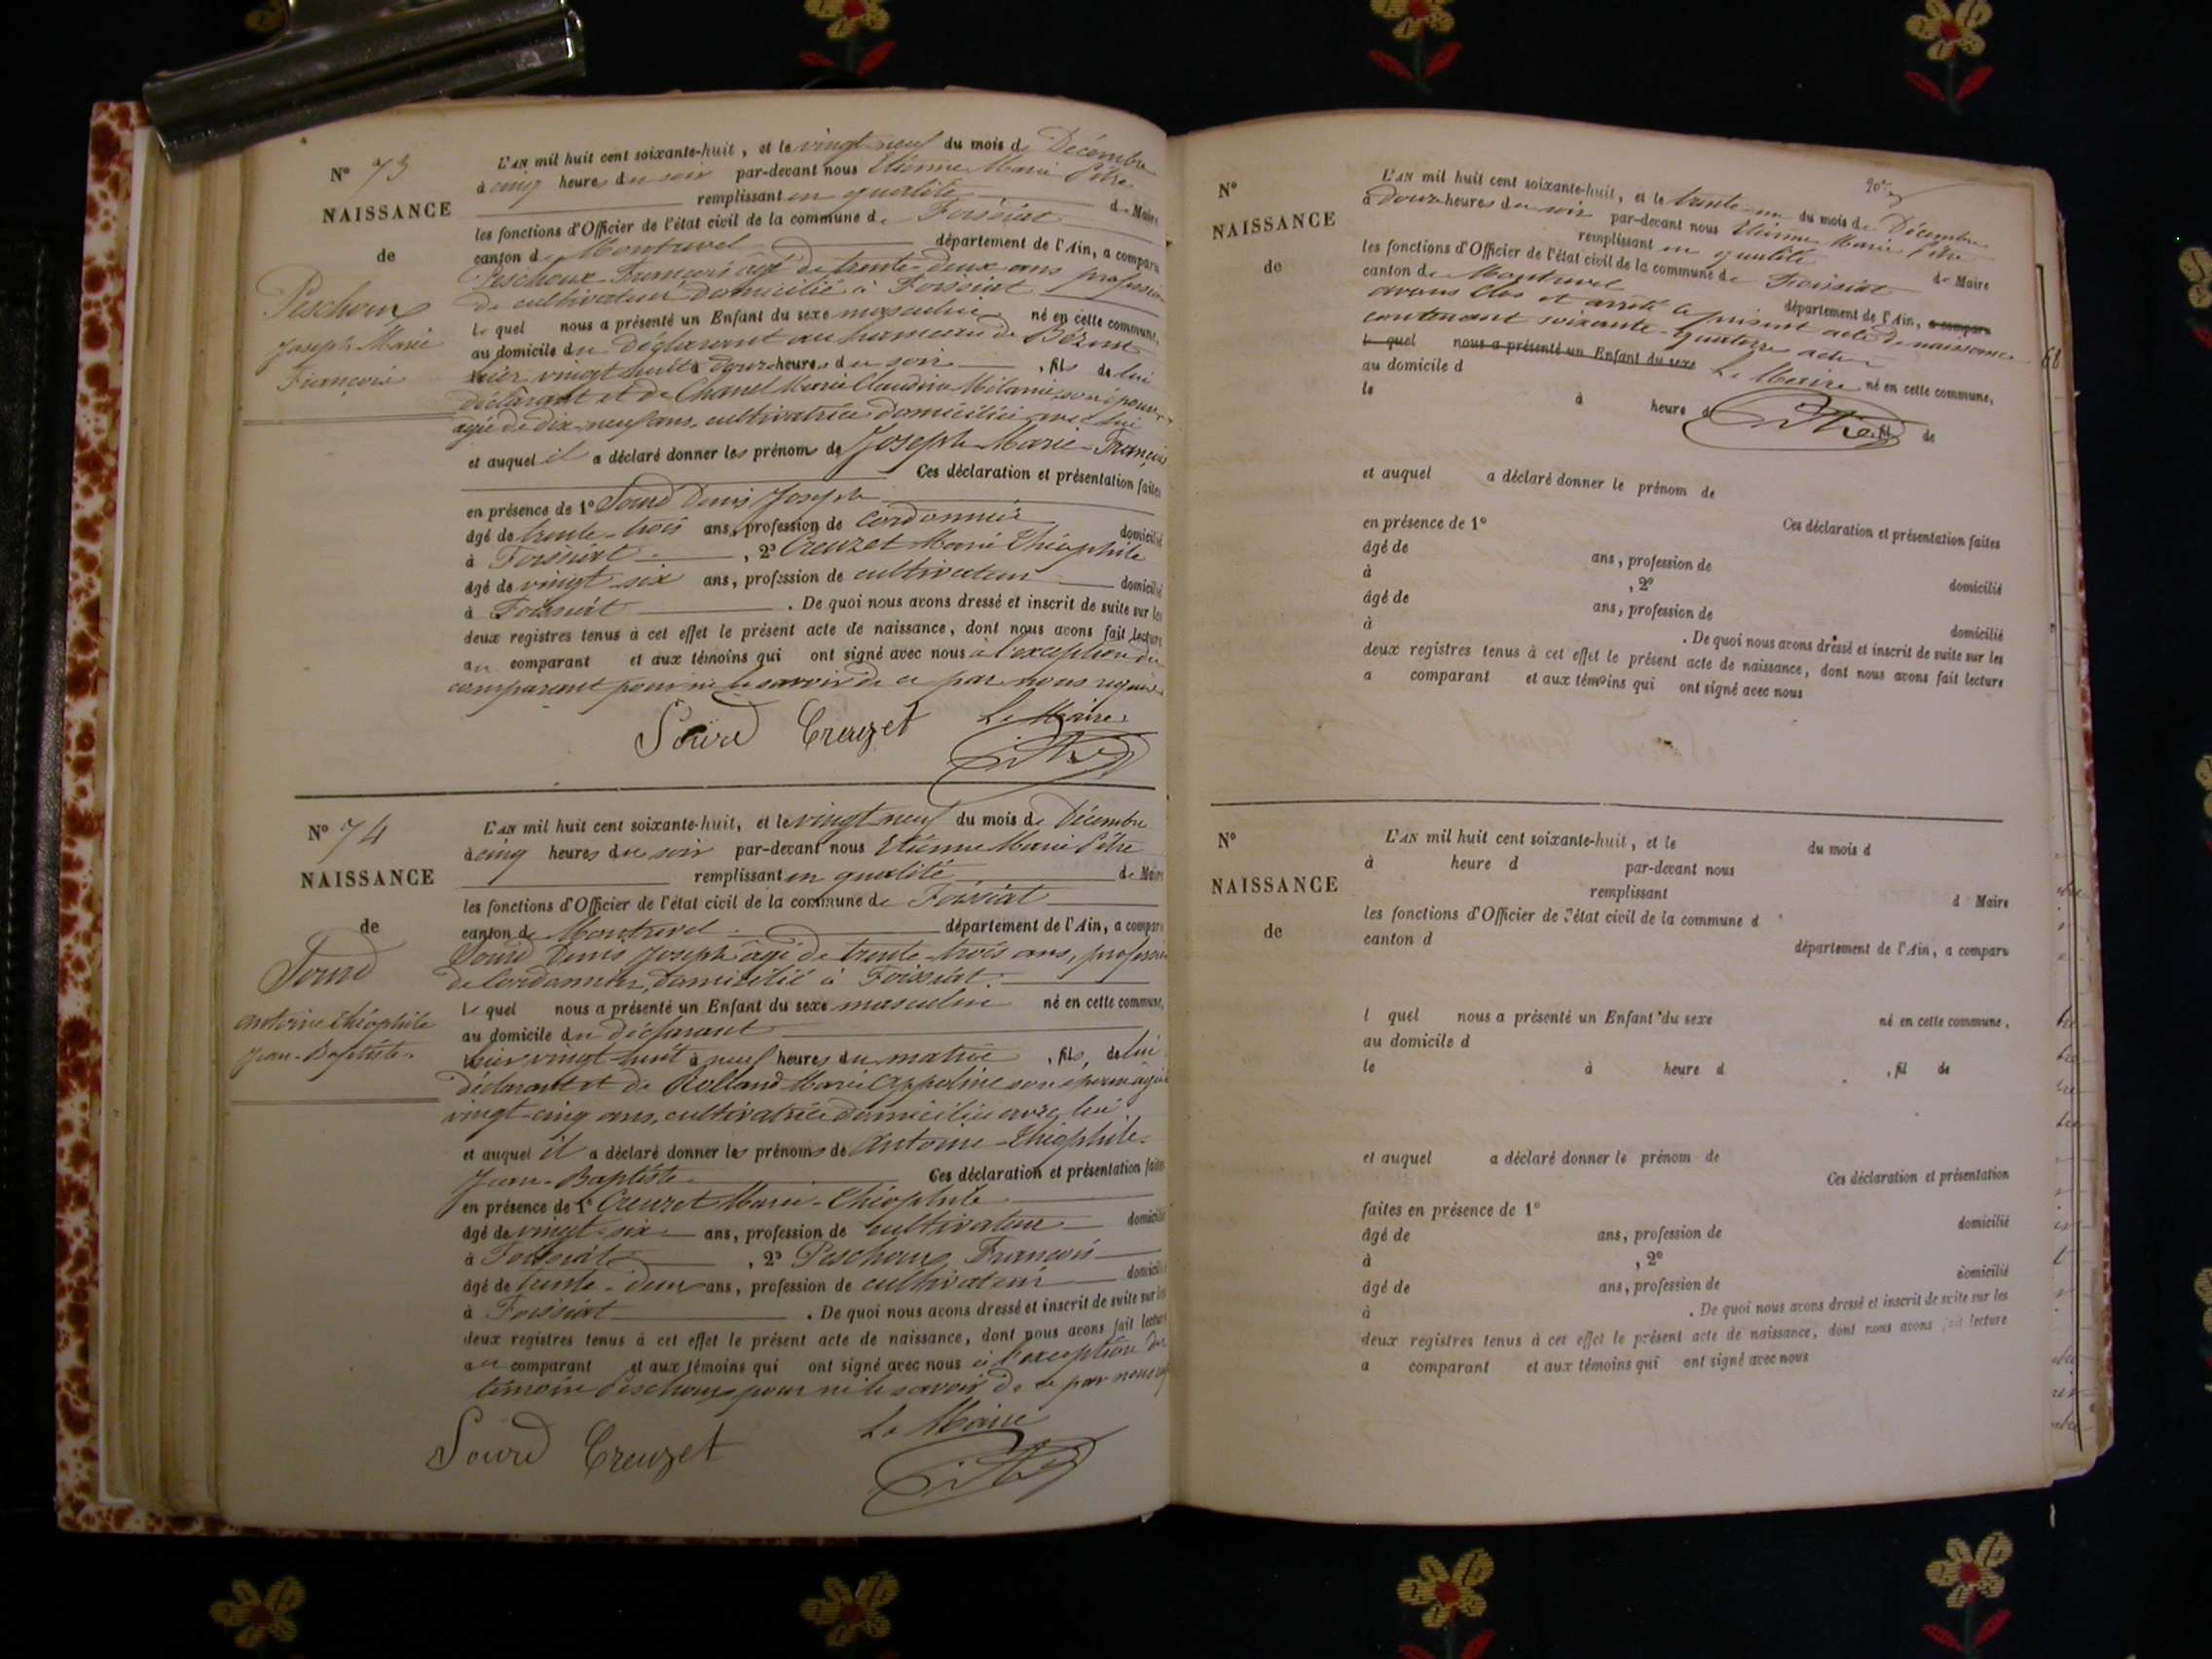 N° 73
NAISSANCE
de
Peschoux
Joseph Marie
François
L'AN mil huit cent soixante-huit, et le vingt neuf du mois de Décembre
à cinq heures du soir par-devant nous Etienne Marie Pitre
remplissant en qualité de Maire
les fonctions d'Officier de l'état civil de la commune de Foissiat
canton de Montrevel département de l'Ain, a comparu
Peschoux François âgé de trente-deux ans profession
de cultivateur domicilié à Foissiat
le quel nous a présenté un Enfant du sexe masculin né en cette commune,
au domicile du déclarant au hameau de
hier vingt huit à douze heures du soir, fils de lui
déclarant et de Chanel Marie Claudine Mélanie son épouse
âgée de dix-neuf ans, cultivatrice domiciliée avec lui
et auquel il a déclaré donner les prénoms de Joseph-Marie-François
Ces déclaration et présentation faites
en présence de 1° Sourd Denis Joseph
âgé de trente-trois ans, profession de cordonnier domicilié
à Foissiat, 2° Creuzet Marie Théophile
âgé de vingt six ans, profession de cultivateur domicilié
à Foissiat. De quoi nous avons dressé et inscrit de suite sur les
deux registres tenus à cet effet le présent acte de naissance, dont nous avons fait lecture
au comparant et aux témoins qui ont signé avec nous à l'exception du
comparant pour ne le savoir de ce par nous requis
Sourd Creuzet Le Maire
N° 74
NAISSANCE
de
Sourd
Antoine Théophile
Jean-Baptiste
L'AN mil huit cent soixante-huit, et le vingt neuf du mois de Décembre
à cinq heures du soir par-devant nous Etienne Marie Pitre
remplissant en qualité de Maire
les fonctions d'Officier de l'état civil de la commune de Foissiat
canton de Montrevel département de l'Ain, a comparu
Sourd Denis Joseph âgé de trente-trois ans, profession
de Cordonnier, domicilié à Foissiat.
le quel nous a présenté un Enfant du sexe masculin né en cette commune,
au domicile du déclarant
hier vingt-huit à neuf heures du matin, fils de lui
déclarant et de Rolland Marie Appoline son épouse âgée
vingt-cinq ans, cultivatrice domiciliée avec lui.
et auquel il a déclaré donner les prénoms de Antoine-Théophile-
Jean-Baptiste Ces déclaration et présentation faites
en présence de 1° Creuzet Marie-Théophile
âgé de vingt-six ans, profession de cultivateur domicilié
à Foissiat, 2° Peschoux François
âgé de trente-deux ans, profession de cultivateur domicilié
à Foissiat. De quoi nous avons dressé et inscrit de suite sur les
deux registres tenus à cet effet le présent acte de naissance, dont nous avons fait lecture
au comparant et aux témoins qui ont signé avec nous à l'exception du
témoin Peschoux pour ne le savoir de ce par nous
Sourd Creuzet Le Maire
N°
NAISSANCE
de
L'AN mil huit cent soixante-huit, et le trente-un du mois de Décembre
à Douze heures du soir par-devant nous Etienne Marie Pitre
remplissant en qualité de Maire
les fonctions d'Officier de l'état civil de la commune de Foissiat
canton de Montrevel département de l'Ain, a comparu
avons clos et arrêté le présent acte de naissance
contenant soixante-quatorze actes
le quel nous a présenté un Enfant du sexe Le Maire né en cette commune,
au domicile d
le à heure d , fil de
et auquel a déclaré donner le prénom de
Ces déclaration et présentation faites
en présence de 1°
âgé de ans, profession de domicilié
à , 2°
âgé de ans, profession de domicilié
à . De quoi nous avons dressé et inscrit de suite sur les
deux registres tenus à cet effet le présent acte de naissance, dont nous avons fait lecture
a comparant et aux témoins qui ont signé avec nous
68
N°
NAISSANCE
de
L'AN mil huit cent soixante-huit, et le du mois d
à heure d par-devant nous
remplissant d Maire
les fonctions d'Officier de l'état civil de la commune d
canton d département de l'Ain, a comparu
l quel nous a présenté un Enfant du sexe né en cette commune,
au domicile d
le à heure d , fil de
et auquel a déclaré donner le prénom de
Ces déclaration et présentation
faites en présence de 1°
âgé de ans, profession de domicilié
à , 2°
âgé de ans, profession de domicilié
à . De quoi nous avons dressé et inscrit de suite sur les
deux registres tenus à cet effet le présent acte de naissance, dont nous avons fait lecture
a comparant et aux témoins qui ont signé avec nous